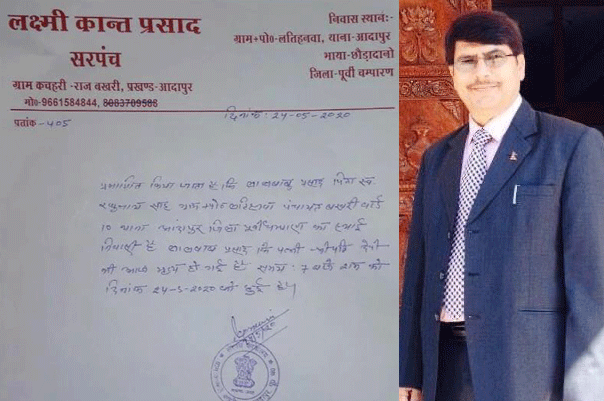 लक्ष्मी कान्त प्रसाद
सरपंच
ग्राम कचहरी -राज बखरी, प्रखण्ड-आदापुर
मो०-9661584844, 8083709588
निवास स्थान:-
ग्राम+पो०-लतिहनवा, थाना-आदापुर
भाया-छौड़ादानो
जिला-पूर्वी चम्पारण
पत्रांक -405
दिनांक: 24-05-2020
प्रमाणित किया जाता है कि लालबाबु प्रसाद पिता स्व.
पंचायत बखरी वार्ड
10 थाना आदापुर जिला पूर्वी चम्पारण का स्थाई
निवासी है लालबाबु प्रसाद कि पत्नी देवी
की आज मृत्यु हो गई है समय: 7 बजे को
दिनांक 24-5-2020 को हुई है।